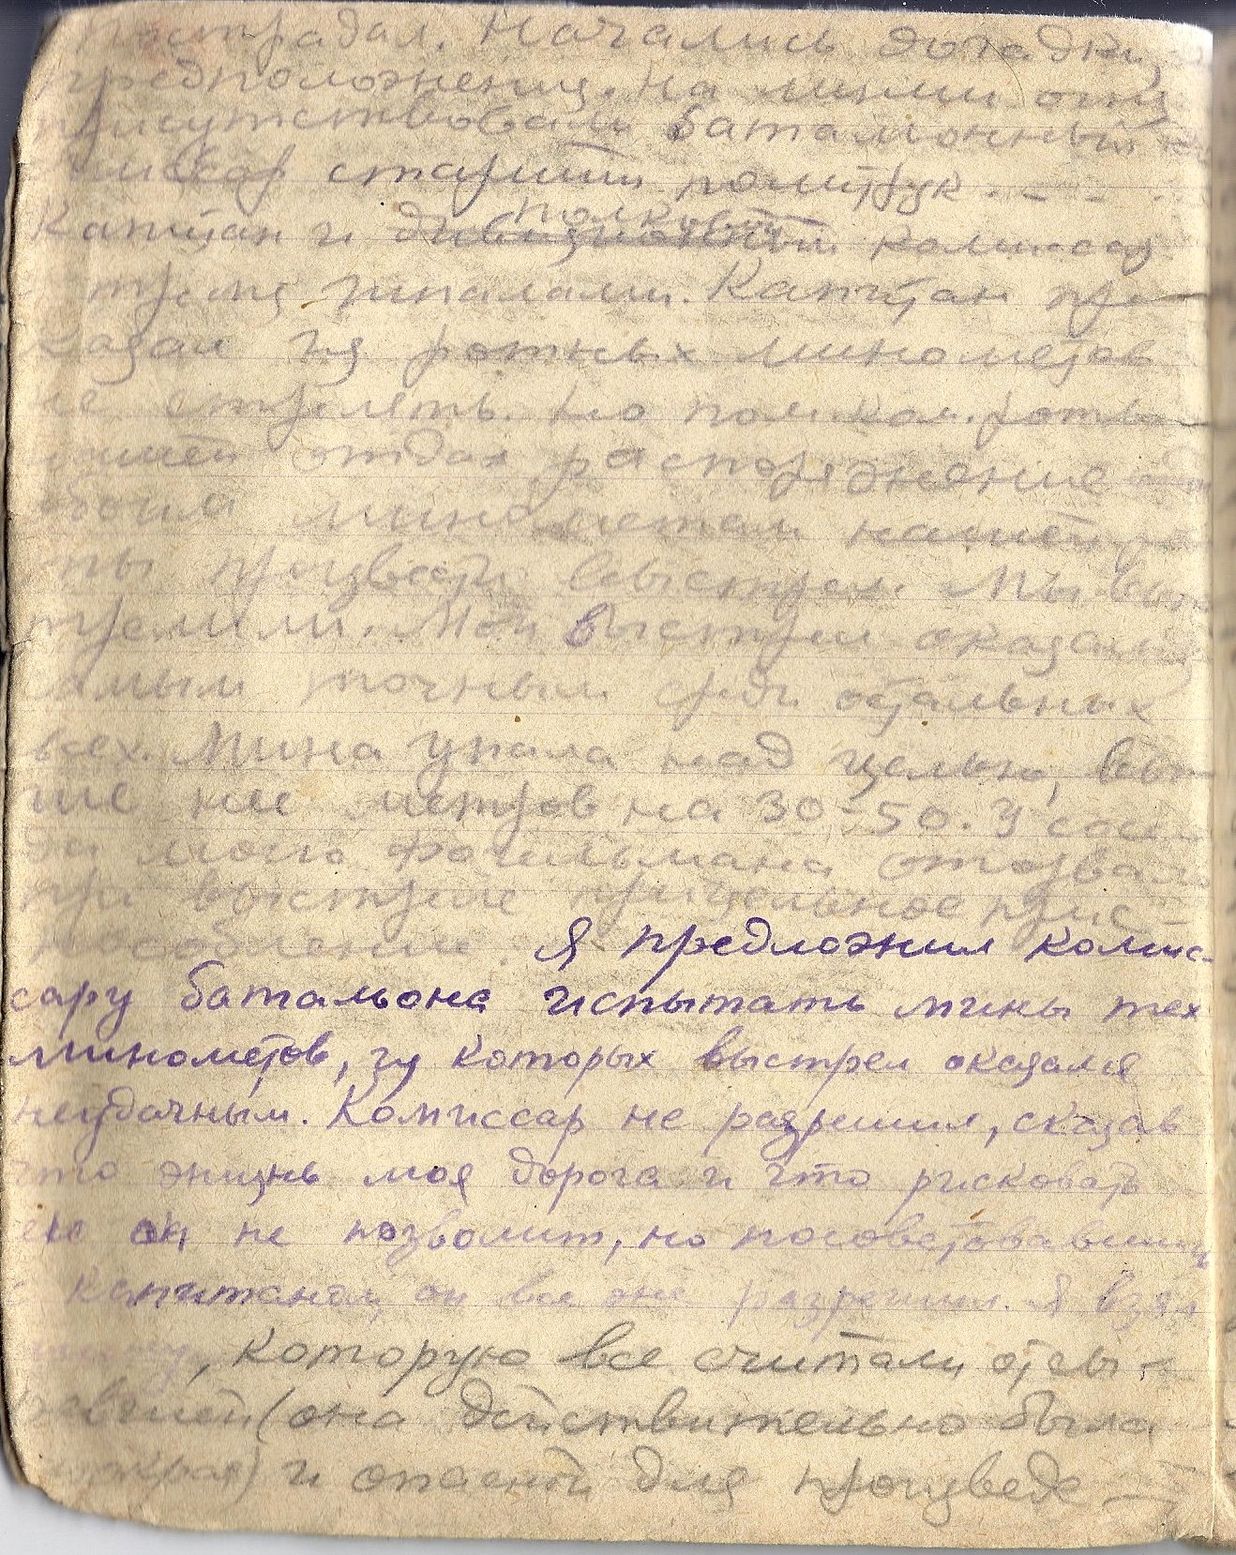 пострадал. Начались догадки,
предположения. На линии огня
присутствовали батальонный ко-
миссар старший политрук - - -
Капитан и дивизионный полковой комиссар
с тремя шпалами. Капитан при-
казал из ротных минометов
не стрелять. Но пом. ком. роты
нашей отдал распоряжение
всем минометам нашей ро-
ты произвести выстрел. Мы выс-
трелили. Мой выстрел оказался
самым точным среди остальных
всех. Мина упала над целью, вы-
ше нее метров на 30-50. У сосе-
да моего Фогельмана оторвало
при выстреле прицельное прис-
пособление. Я предложил комис-
сару батальона испытать мины тех
минометов, из которых выстрел оказался
неудачным. Комиссар не разрешил, сказав
что жизнь моя дорога и что рисковать
ею он не позволит, но посоветовавшись
с капитаном, он все же разрешил. Я взял
мину, которую все считали отсы-
ревшей (она действительно была
мокрая) и опасной для произведе-